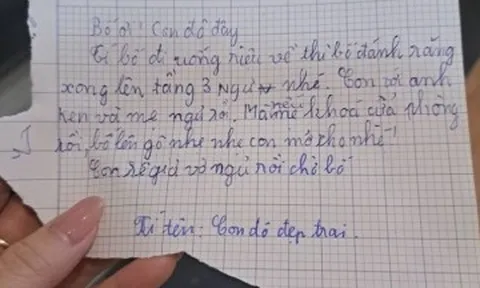 Bố ơi! Con dô đây
Tí bố đi uống riêu về thì bố đánh răng
xong lên tầng 3 ngủ nhé. Con với anh
ken và mẹ ngủ rồi. Mà nếu mẹ khoá cửa phòng
rồi, bố lên gõ nhẹ nhẹ con mở cho nhé!
Con sẽ giả vờ ngủ rồi chờ bố
Kí tên: Con dô đẹp trai.